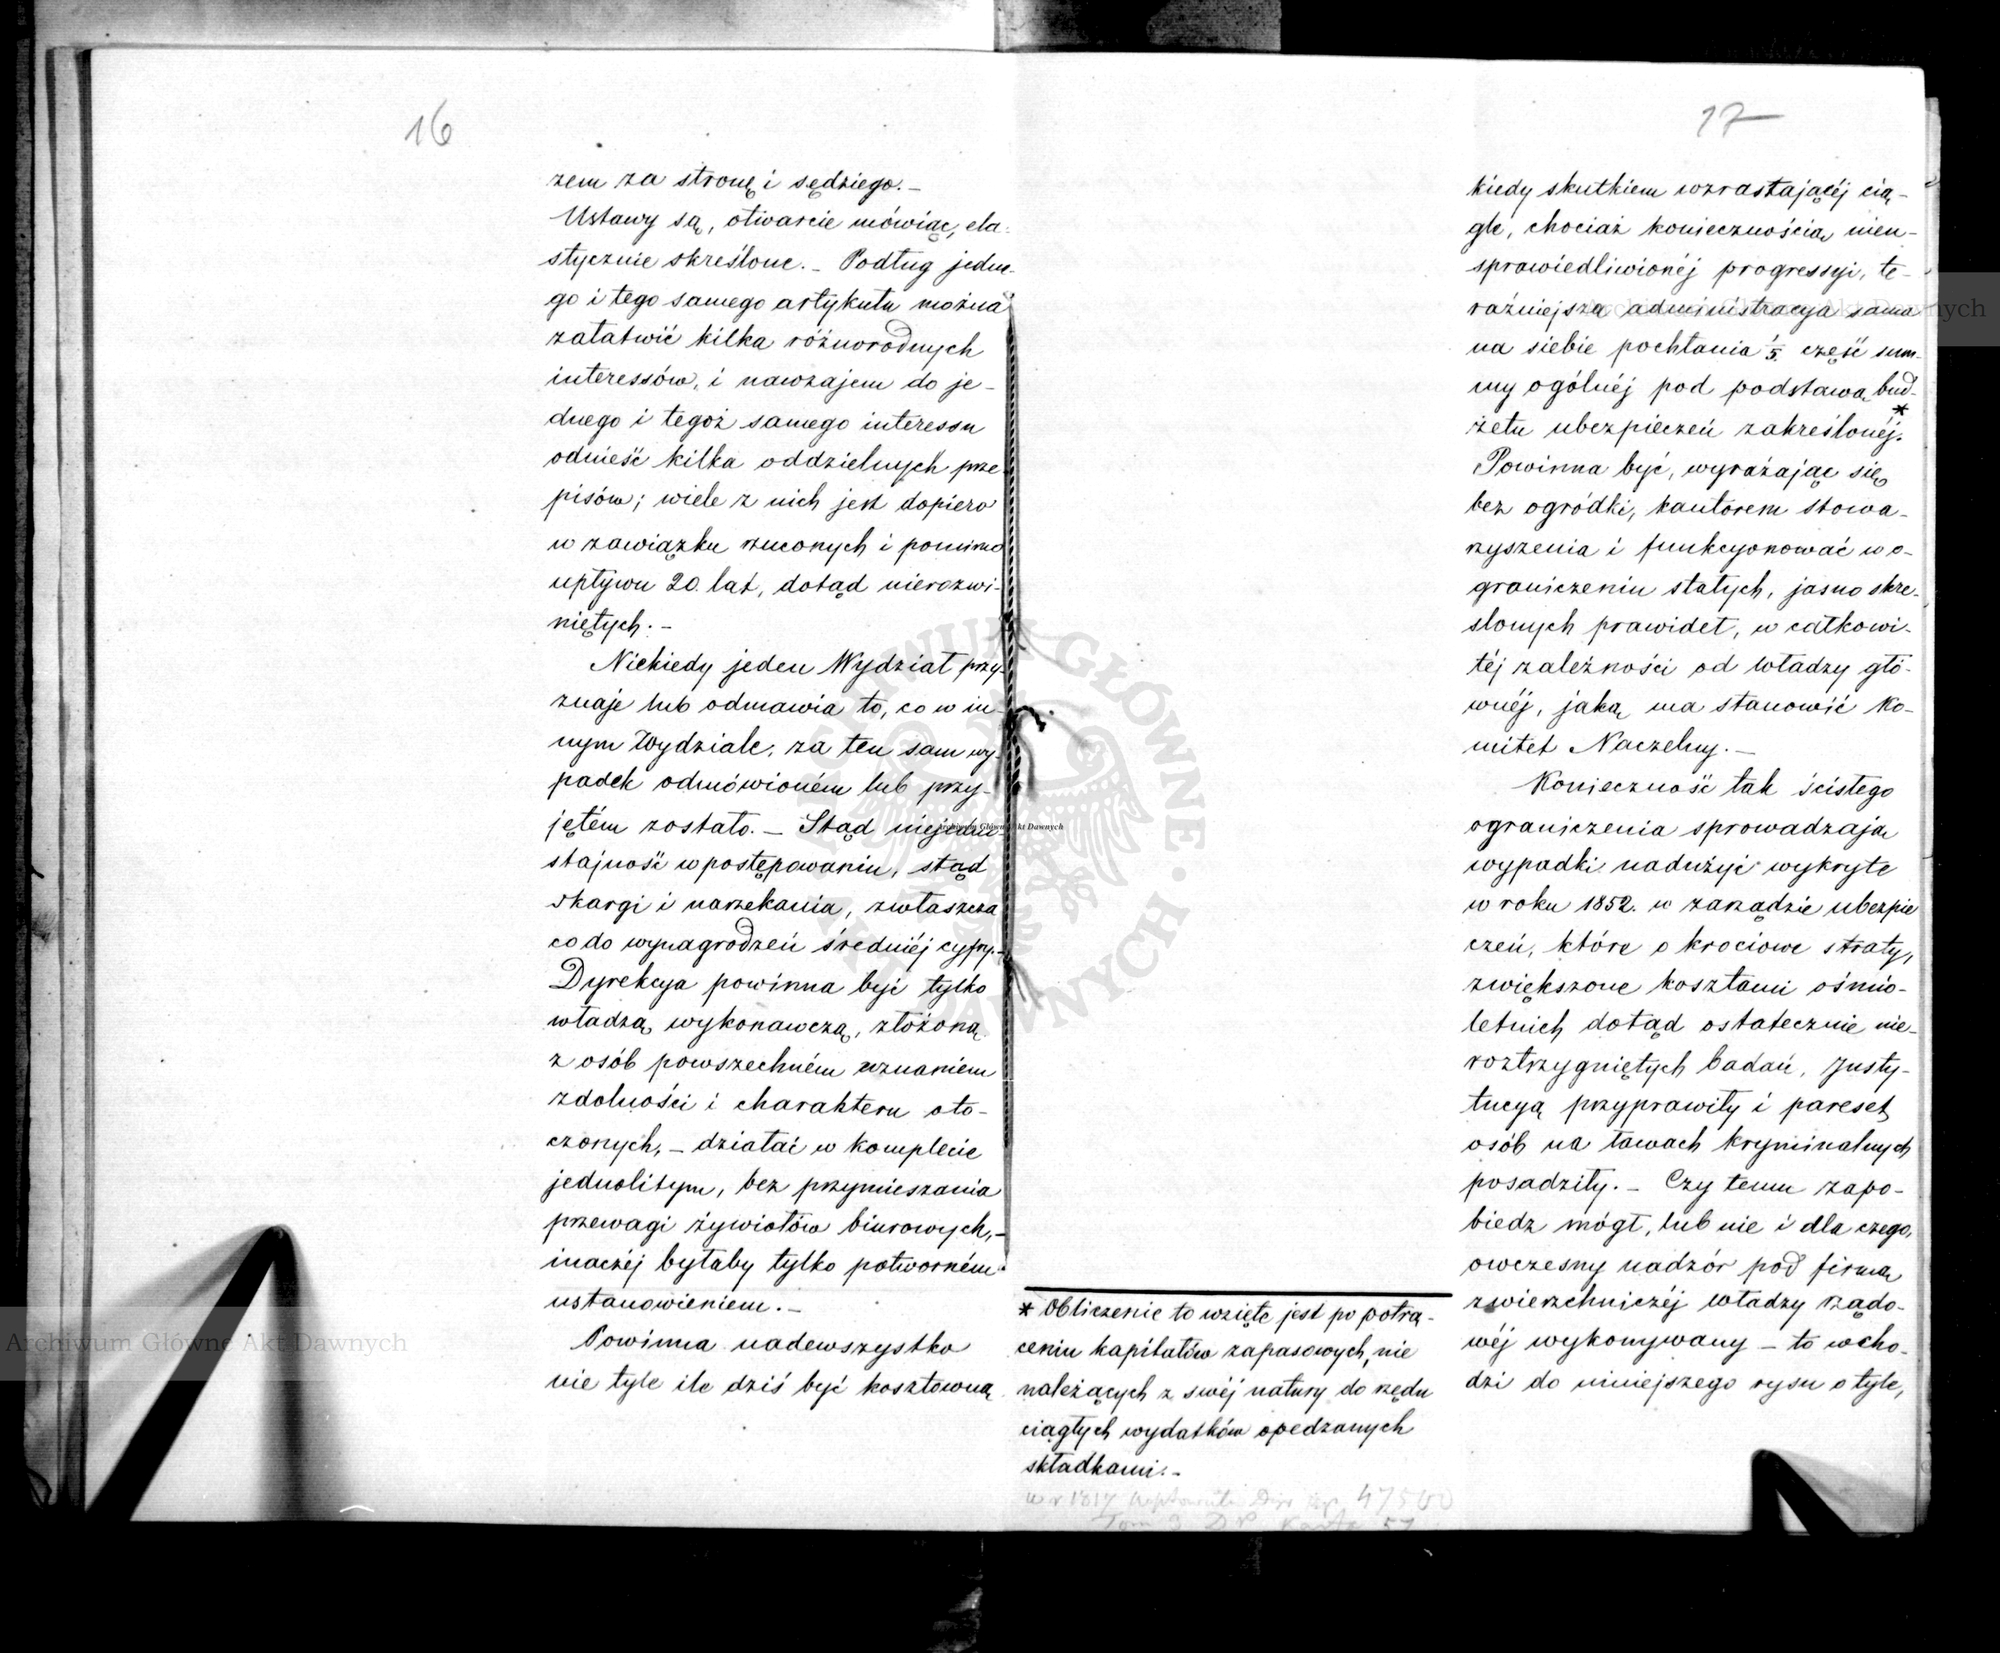 16
zem za stronę i sędziego. –
Ustawy są, otwarcie mówiąc, ela-
stycznie skreślone. – Podług jedne-
go i tego samego artykułu można
załatwić kilka różnorodnych
interessów, i nawzajem do je-
dnego i tegoż samego interessu
odnieść kilka oddzielnych prze
pisów; wiele z nich jest dopiero
w zawiązku rzuconych i pomimo
upływu 20. lat, dotąd nierozwi-
niętych. –
Niekiedy jeden Wydział przy-
znaje lub odmawia to, co w in-
nym Wydziale, za ten sam wy-
padek odmówioném lub przy-
jętém zostało. – Stąd niejedno-
stajność w postępowaniu, stąd
skargi i narzekania, zwłaszcza
co do wynagrodzeń średniéj cyfry. –
Dyrekcya powinna być tylko
władzą wykonawczą, złożoną
z osób powszechném uznaniem
zdolności i charakteru oto-
czonych, – działać w komplecie
jednolitym, bez przymieszania
przewagi żywiołów biurowych, –
inaczéj byłaby tylko potworném
ustanowieniem. –
Powinna nadewszystko
nie tyle ile dziś być kosztowną
17
kiedy skutkiem wzrastającéj cią-
gle, chociaż koniecznością nieu-
sprawiedliwionéj progressyi, te-
raźniejsza administracya sama
na siebie pochłania 1/5. część sum-
my ogólnéj pod podstawą bud-
żetu ubezpieczeń zakreślonéj. *
Powinna być, wyrażając się
bez ogródki, kantorem stowa-
rzyszenia i funkcyonować w o-
graniczeniu stałych, jasno skre-
slonych prawideł, w całkowi-
téj zależności od władzy głó-
wnéj, jaką ma stanowić Ko-
mitet Naczelny. –
Konieczność tak ścisłego
ograniczenia sprowadzają
wypadki nadużyć wykryte
w roku 1852. w zarządzie ubezpie
czeń, które o krociowe straty,
zwiększone kosztami ośmio-
letnich dotąd ostatecznie nie-
roztrzygniętych badań, Insty-
tucyą przyprawiły i pareset
osób na ławach kryminalnych
posadziły. – Czy temu zapo-
biedz mógł, lub nie i dla czego,
owczesny nadzór pod firmą
zwierzchniczéj władzy rządo-
wéj wykonywany – to wcho-
dzi do niniejszego rysu o tyle,
* Obliczenie to wzięte jest po potrą-
ceniu kapitałów zapasowych, nie
należących z swéj natury do rzędu
ciągłych wydatków opędzanych
składkami. –
w r. 1817 47500
Tom 3 Karta 57
Archiwum Główne Akt Dawnych
Archiwum Główne Akt Dawnych
Archiwum Główne Akt Dawnych
ARCHIWUM GŁÓWNE AKT DAWNYCH